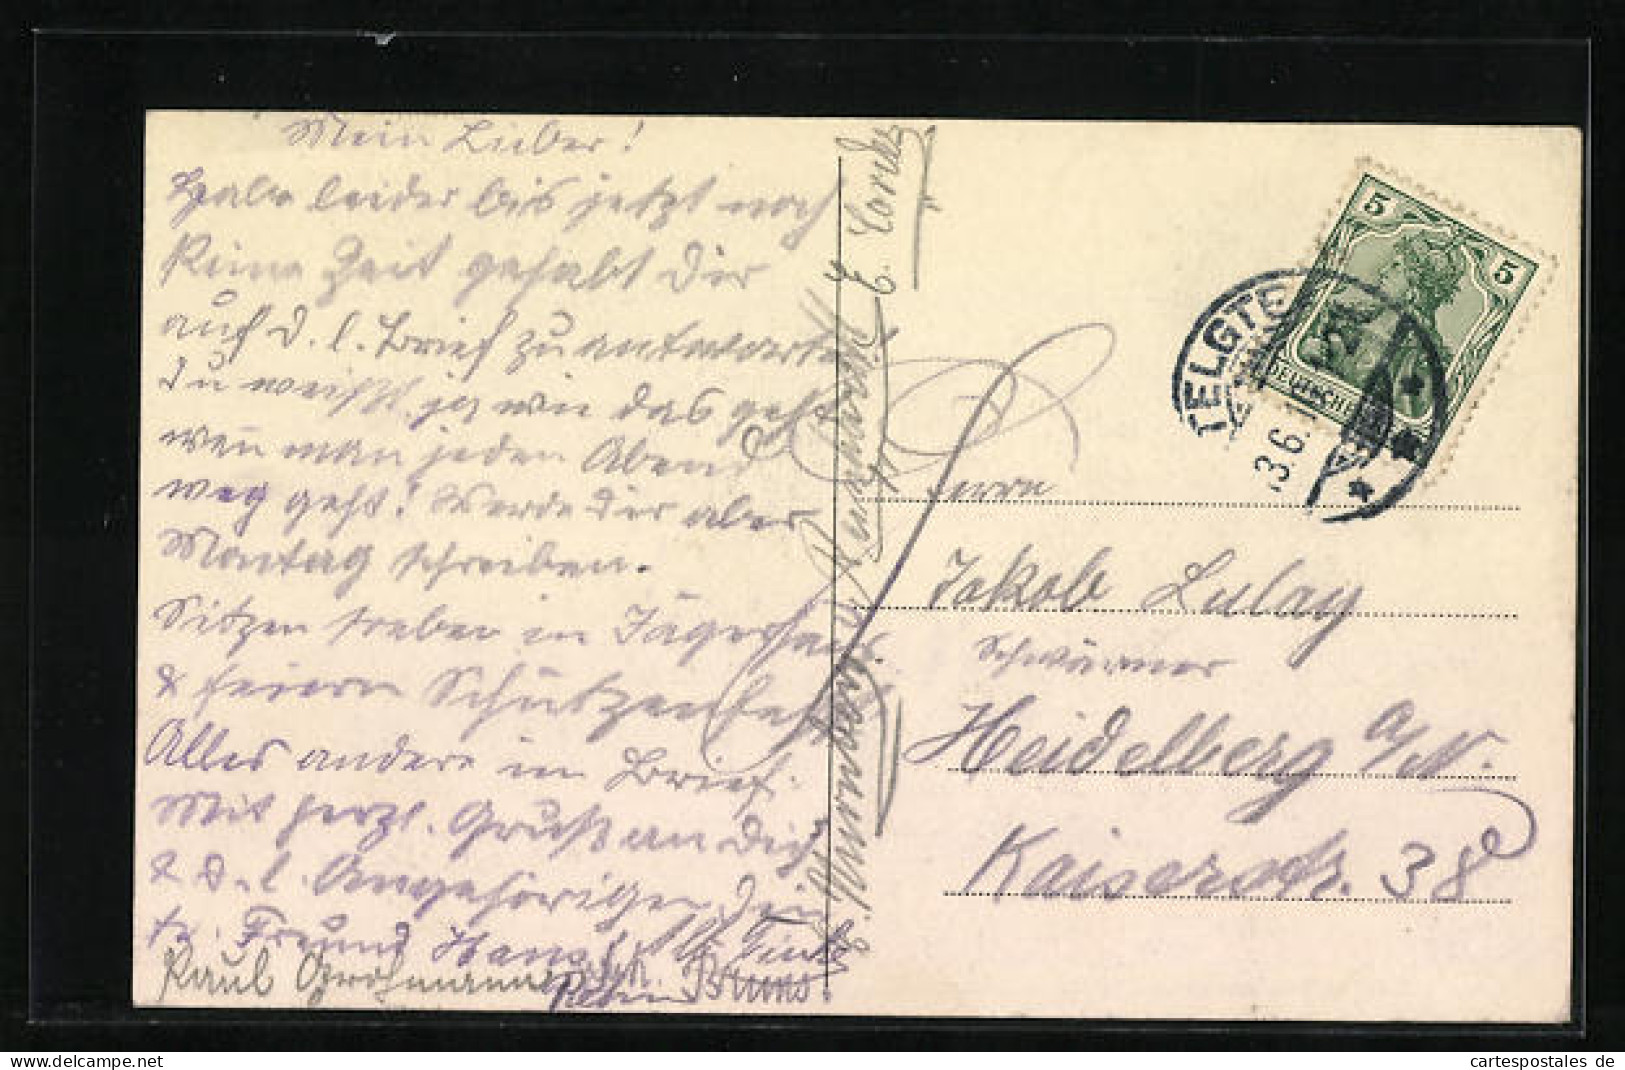 Mein Lieber!
Habe leider bis jetzt noch
keine Zeit gehabt Dir
auf d. l. Brief zu antworten!
Du weißt ja wie das geht
wen man jeden Abend
weg geht! Werde Dir aber
Montag schreiben.
Sitzen soeben in Jägerhaus
& feiern Schützenfest
Alles andere im Brief.
Mit herzl. Gruß an Dich
& d. l. Angehörigen Dein
tr. Freund Hans
Paul Grohmann
Bruns.
TELGTE
3.6.
5
5
DEUTSCHES
Herrn
Jakob Lulay
Schwärmer
Heidelberg a/N.
Kaiserstr. 38
cartespostales de